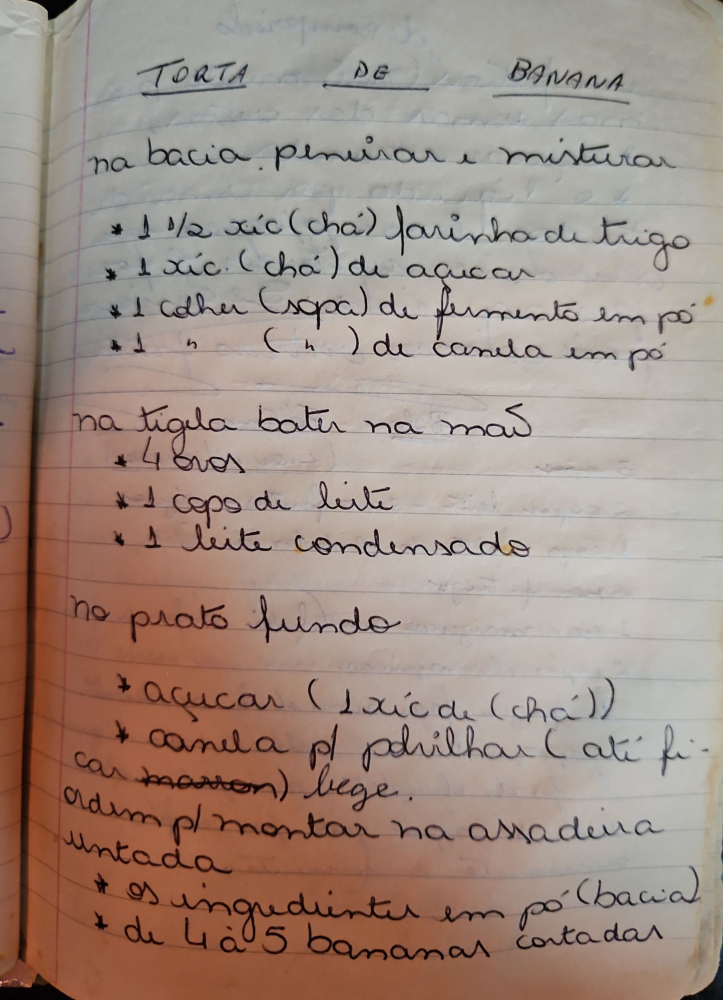 TORTA DE BANANA
na bacia peneirar e misturar
* 1 1/2 xíc (chá) farinha de trigo
* 1 xíc. (chá) de açucar
* 1 colher (sopa) de fermento em pó
* 1 " ( " ) de canela em pó
na tigela bater na mão
* 4 ovos
* 1 copo de leite
* 1 leite condensado
no prato fundo
* açucar (1 xíc de (chá))
* canela p/ polvilhar (até fi-
car marron) bege.
ordem p/ montar na assadeira
untada
* os ingredientes em pó (bacia)
* de 4 à 5 bananas cortadas